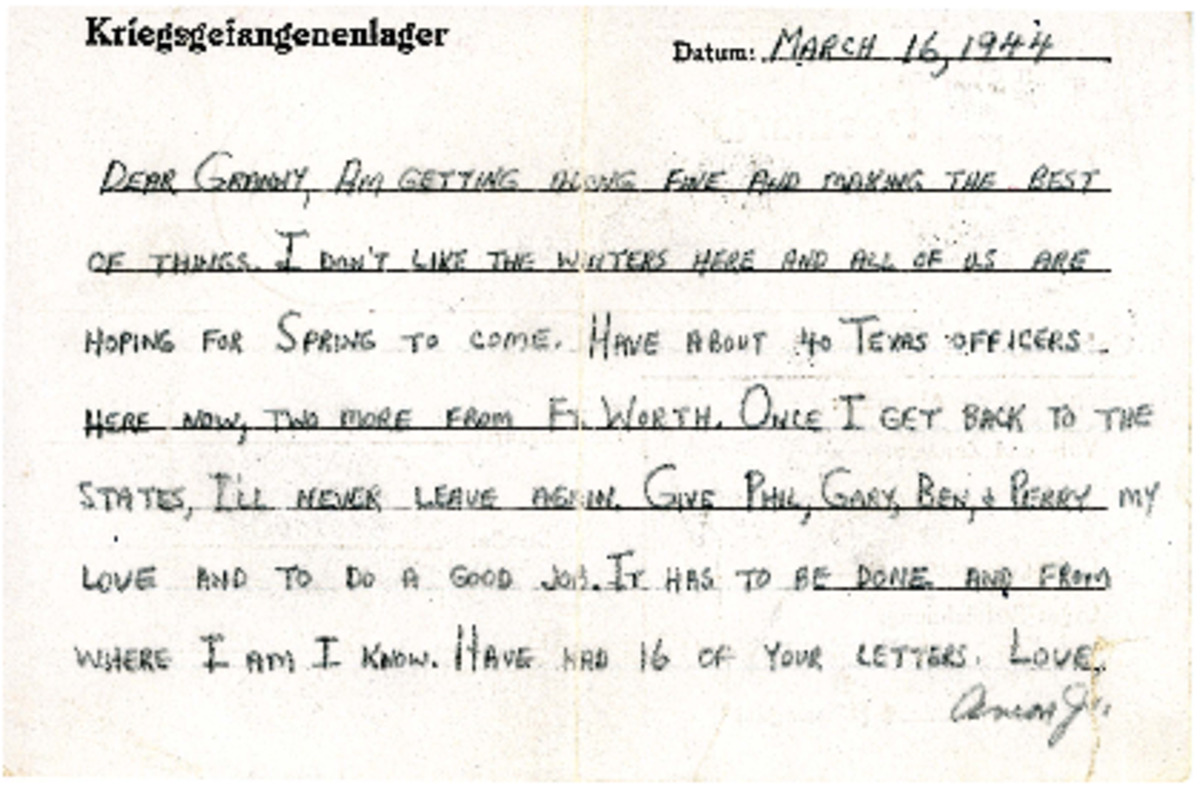 Kriegsgefangenenlager
Datum: MARCH 16, 1944
DEAR GRANNY, AM GETTING ALONG FINE AND MAKING THE BEST
OF THINGS. I DON'T LIKE THE WINTERS HERE AND ALL OF US ARE
HOPING FOR SPRING TO COME. HAVE ABOUT 40 TEXAS OFFICERS
HERE NOW, TWO MORE FROM FT. WORTH. ONCE I GET BACK TO THE
STATES, I'LL NEVER LEAVE AGAIN. GIVE PHIL, GARY, BEN, & PERRY MY
LOVE AND TO DO A GOOD JOB. IT HAS TO BE DONE AND FROM
WHERE I AM I KNOW. HAVE HAD 16 OF YOUR LETTERS. LOVE,
Amon Jr.